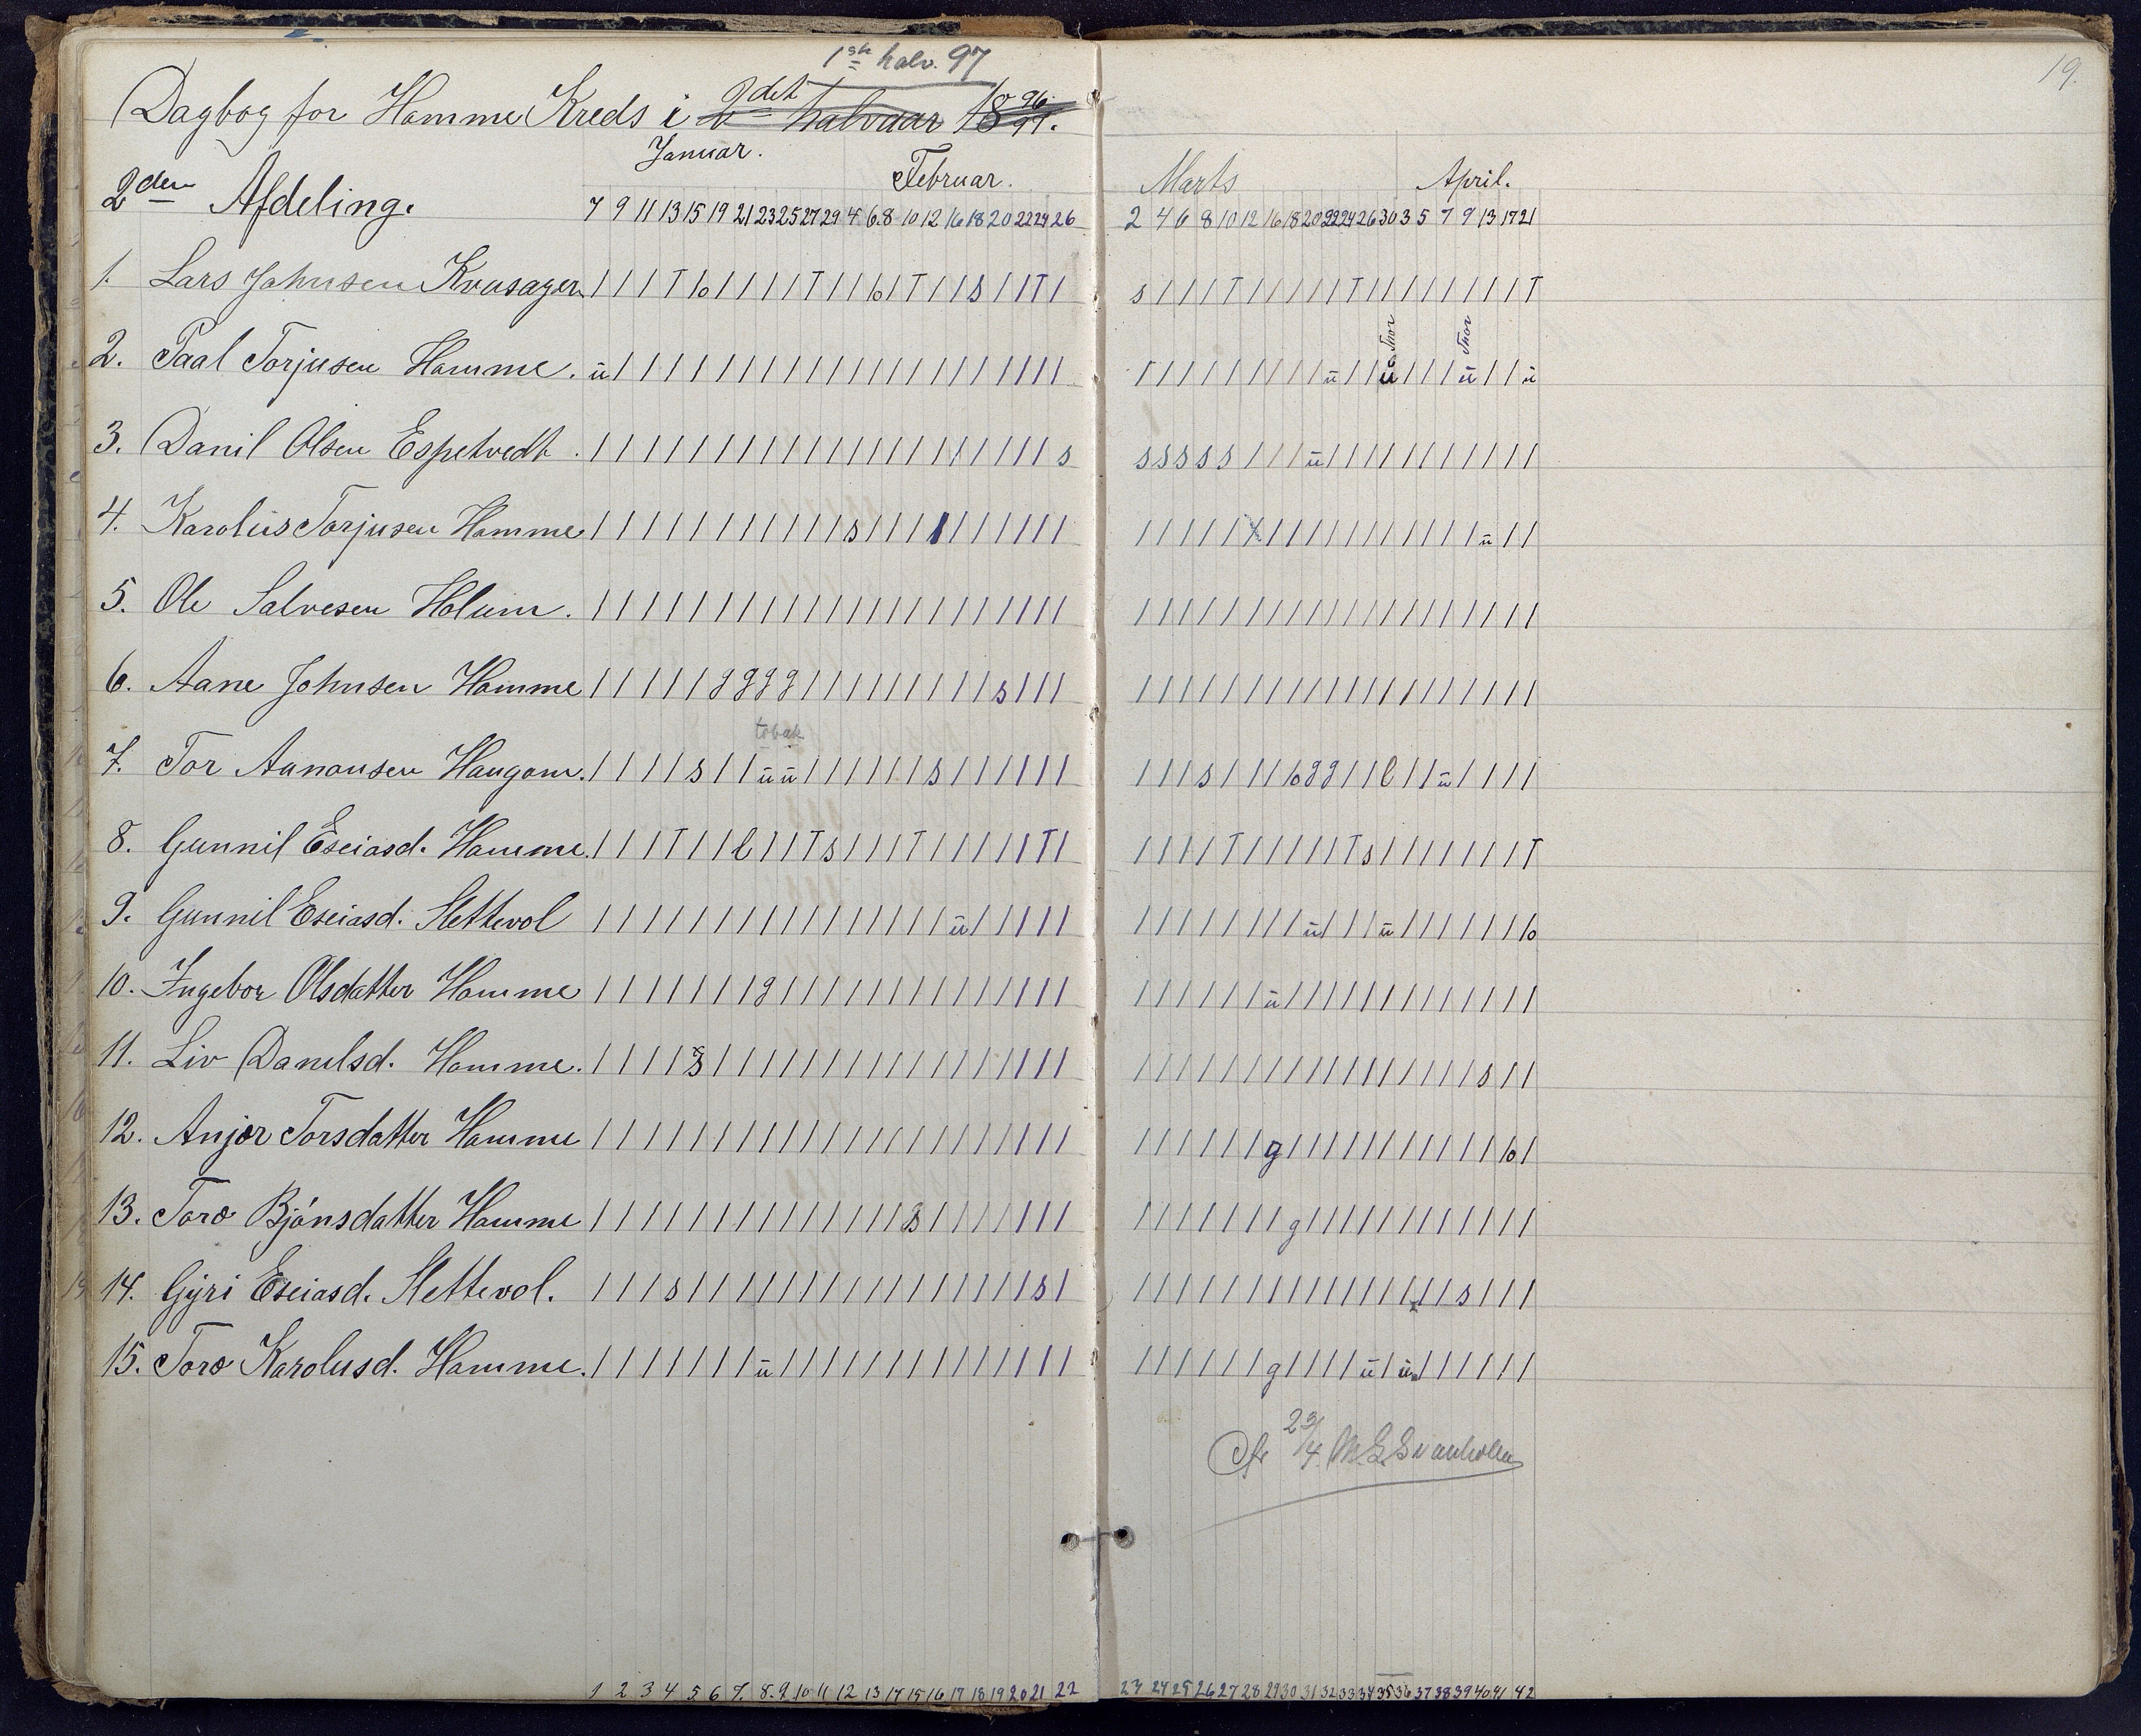 1ste halv. 97
19.
Dagbog for Homme Kreds i 2det halvaar 1896-97.
Januar. Februar. Marts April.
2den Afdeling. 7 9 11 13 15 19 21 23 25 27 29 4 6 8 10 12 16 18 20 22 24 26 2 4 6 8 10 12 16 18 20 22 24 26 30 3 5 7 9 13 17 21
1. Lars Johnsen Kvusager / / / T lo / / / / T / / lo / T / / s / / T / s / / / T / / / / / T / / / / / / / / T
Thor Thor
2. Paal Torjusen Homme. ü / / / / / / / / / / / / / / / / / / / / / / / / / / / / / / / ü / / ü / / / ü / / ü
3. Danil Olsen Espetvedt. / / / / / / / / / / / / / / / / / / / / / s s s s s s / / / ü / / / / / / / / / / /
4. Karolüs Torjusen Homme / / / / / / / / / / / s / / / / / / / / / / / / / / / / / / / / / / / / / / / ü / /
5. Ole Salvesen Holum. / / / / / / / / / / / / / / / / / / / / / / / / / / / / / / / / / / / / / / / / /
6. Aane Johnsen Homme / / / / / g g g g / / / / / / / / / s / / / / / / / / / / / / / / / / / / / / / / /
tobak
7. Tor Aanonsen Haugom. / / / / s / / ü ü / / / / / / s / / / / / / / / / s / / / lo g g / / l / / ü / / / /
8. Gunnil Eseiasd. Homme. / / / T / / l / / T s / / / T / / / / / T / / / / / T / / / / / T s / / / / / / / T
9. Gunnil Eseiasd. Slettevol / / / / / / / / / / / / / / / / ü / / / / / / / / / / / / / ü / / / ü / / / / / / lo
10. Ingebor Olsdatter Homme / / / / / / / g / / / / / / / / / / / / / / / / / / / / ü / / / / / / / / / / / / /
11. Liv Danilsd. Homme. / / / / s / / / / / / / / / / / / / / / / / / / / / / / / / / / / / / / / / / s / /
12. Anjer Torsdatter Homme / / / / / / / / / / / / / / / / / / / / / / / / / / / / g / / / / / / / / / / / lo /
13. Toro Bjönsdatter Homme / / / / / / / / / / / / / / s / / / / / / / / / / / / / / g / / / / / / / / / / / /
14. Gÿri Eseiasd. Slettevol. / / / s / / / / / / / / / / / / / / / / s / / / / / / / / / / / / / / / / / s / / /
15. Toro Karolusd. Homme. / / / / / / / ü / / / / / / / / / / / / / / / / / / / / g / / / / ü / ü / / / / / /
23/4.
1 2 3 4 5 6 7. 8. 9 10 11 12 13 14 15 16 17 18 19 20 21 22 23 24 25 26 27 28 29 30 31 32 33 34 35 36 37 38 39 40 41 42